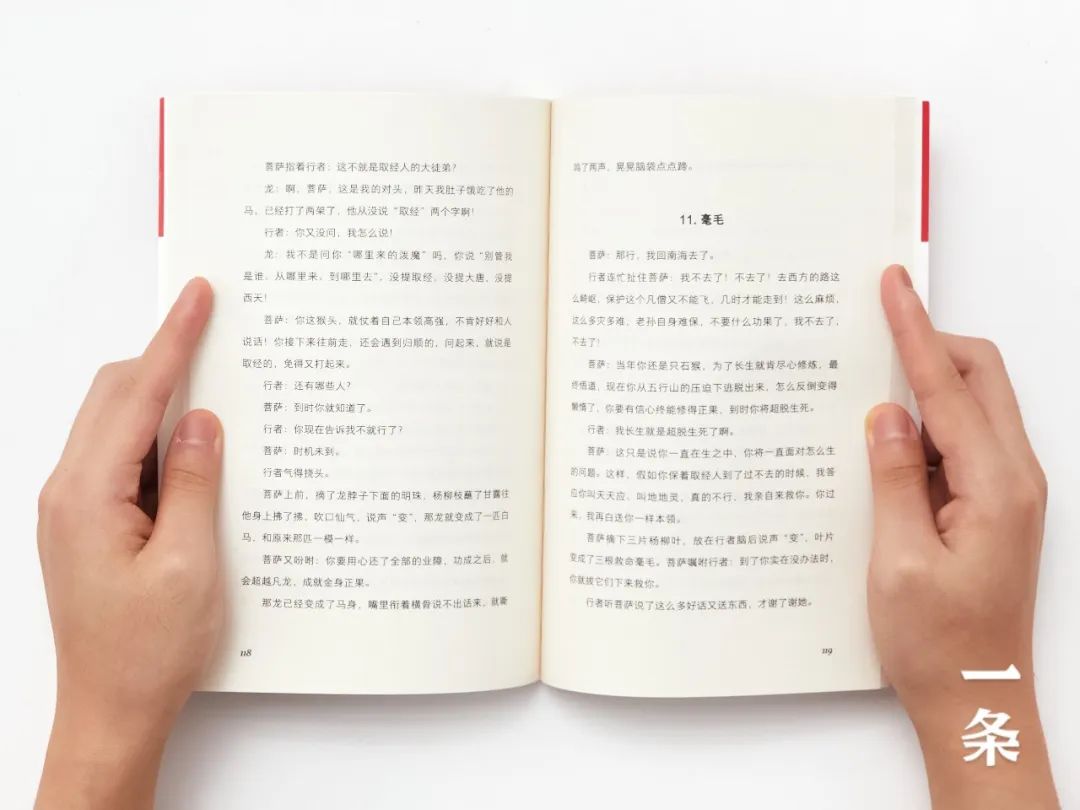 菩萨指着行者：这不就是取经人的大徒弟？
龙：啊，菩萨，这是我的对头，昨天我肚子饿吃了他的
马，已经打了两架了，他从没说“取经”两个字啊！
行者：你又没问，我怎么说！
龙：我不是问你“哪里来的泼魔”吗，你说“别管我
是谁，从哪里来，到哪里去”，没提取经，没提大唐，没提
西天！
菩萨：你这猴头，就仗着自己本领高强，不肯好好和人
说话！你接下来往前走，还会遇到归顺的，问起来，就说是
取经的，免得又打起来。
行者：还有哪些人？
菩萨：到时你就知道了。
行者：你现在告诉我不就行了？
菩萨：时机未到。
行者气得挠头。
菩萨上前，摘了龙脖子下面的明珠，杨柳枝蘸了甘露往
他身上拂了拂，吹口仙气，说声“变”，那龙就变成了一匹白
马，和原来那匹一模一样。
菩萨又吩咐：你要用心还了全部的业障，功成之后，就
会超越凡龙，成就金身正果。
那龙已经变成了马身，嘴里衔着横骨说不出话来，就嘶
118
鸣了两声，晃晃脑袋点点蹄。
11. 毫毛
菩萨：那行，我回南海去了。
行者连忙扯住菩萨：我不去了！不去了！去西方的路这
么崎岖，保护这个凡僧又不能飞，几时才能走到！这么麻烦，
这么多灾多难，老孙自身难保，不要什么功果了，我不去了，
不去了！
菩萨：当年你还是只石猴，为了长生就肯尽心修炼，最
终悟道，现在你从五行山的压迫下逃脱出来，怎么反倒变得
懒惰了，你要有信心终能修得正果，到时你将超脱生死。
行者：我长生就是超脱生死了啊。
菩萨：这只是说你一直在生之中，你将一直面对怎么生
的问题。这样，假如你保着取经人到了过不去的时候，我答
应你叫天天应，叫地地灵，真的不行，我亲自来救你。你过
来，我再白送你一样本领。
菩萨摘下三片杨柳叶，放在行者脑后说声“变”，叶片
变成了三根救命毫毛。菩萨嘱咐行者：到了你实在没办法时，
你就拔它们下来救你。
行者听菩萨说了这么多好话又送东西，才谢了谢她。
119
一条